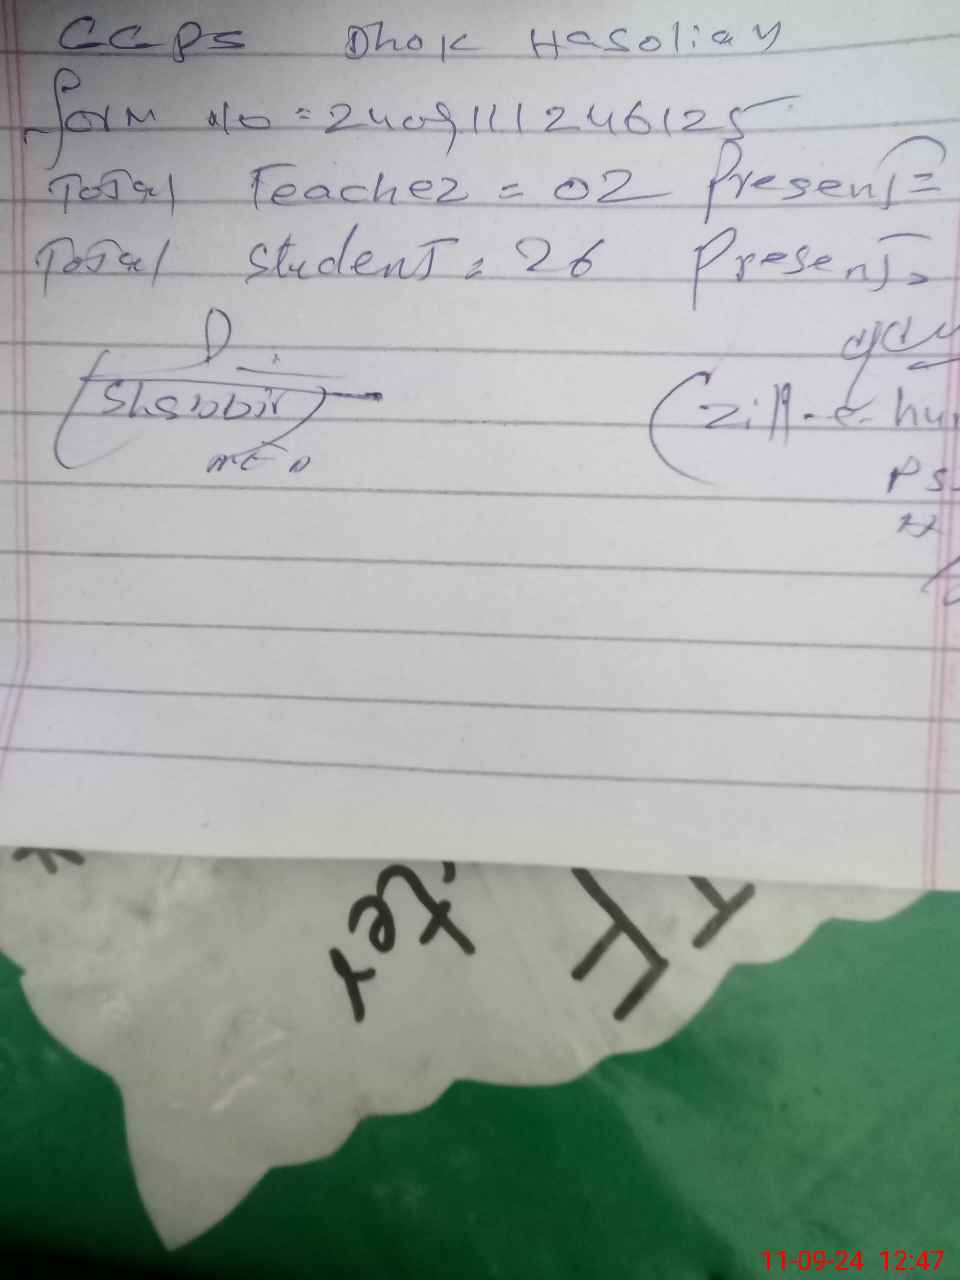 GGPS Dhok Hasoliay
form No = 2409111246125
Total Teacher = 02 Present =
Total Student = 26 Present =
(Shabbir)
(zill-e-hu
PS
ter
11-09-24 12:47